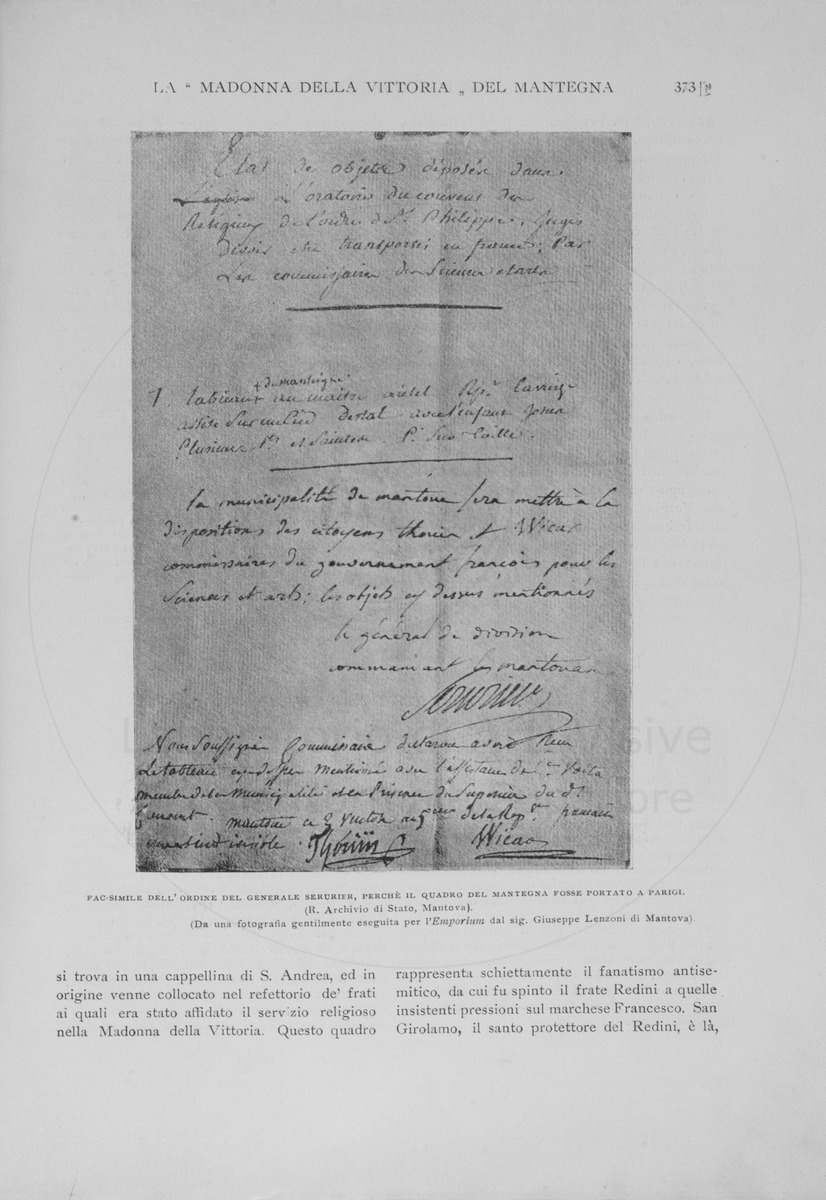 LA “ MADONNA DELLA VITTORIA „ DEL MANTEGNA 373
Etat de objets déposés dans
L'oratoire du couvent des
Religieux de l'ordre de St Philippe. Jugés
devoir etre transportés en france; Par
Les commissaires des Sciences et arts
+ de manteigne
1. tableau du maitre
assise sur un Pied Destal avec l'enfant Jesus
Plusieurs et Saintes. Pt Sur toille.
la municipalité de mantoue fera mettre à la
dispositions des citoyens thouin et Wicar
commissaires du gouvernement francois pour les
Sciences et arts; les objets cy dessus mentionnés
le général de division
commandant le mantouan
Serurier
Nous Soussignés Commissaires avons Recu
Le tableau cy dessus mentionné avec l'assistance de
membre de la Municipalité et en Presence du Superieur du dt
Couvent. mantoue ce 2 Ventose an 5 de la Rep. francaise
une et indivisible. Thouin Wicar
FAC-SIMILE DELL' ORDINE DEL GENERALE SERURIER, PERCHÈ IL QUADRO DEL MANTEGNA FOSSE PORTATO A PARIGI.
(R. Archivio di Stato, Mantova).
(Da una fotografia gentilmente eseguita per l'Emporium dal sig. Giuseppe Lenzoni di Mantova).
si trova in una cappellina di S. Andrea, ed in
origine venne collocato nel refettorio de' frati
ai quali era stato affidato il servizio religioso
nella Madonna della Vittoria. Questo quadro
rappresenta schiettamente il fanatismo antise-
mitico, da cui fu spinto il frate Redini a quelle
insistenti pressioni sul marchese Francesco. San
Girolamo, il santo protettore del Redini, è là,